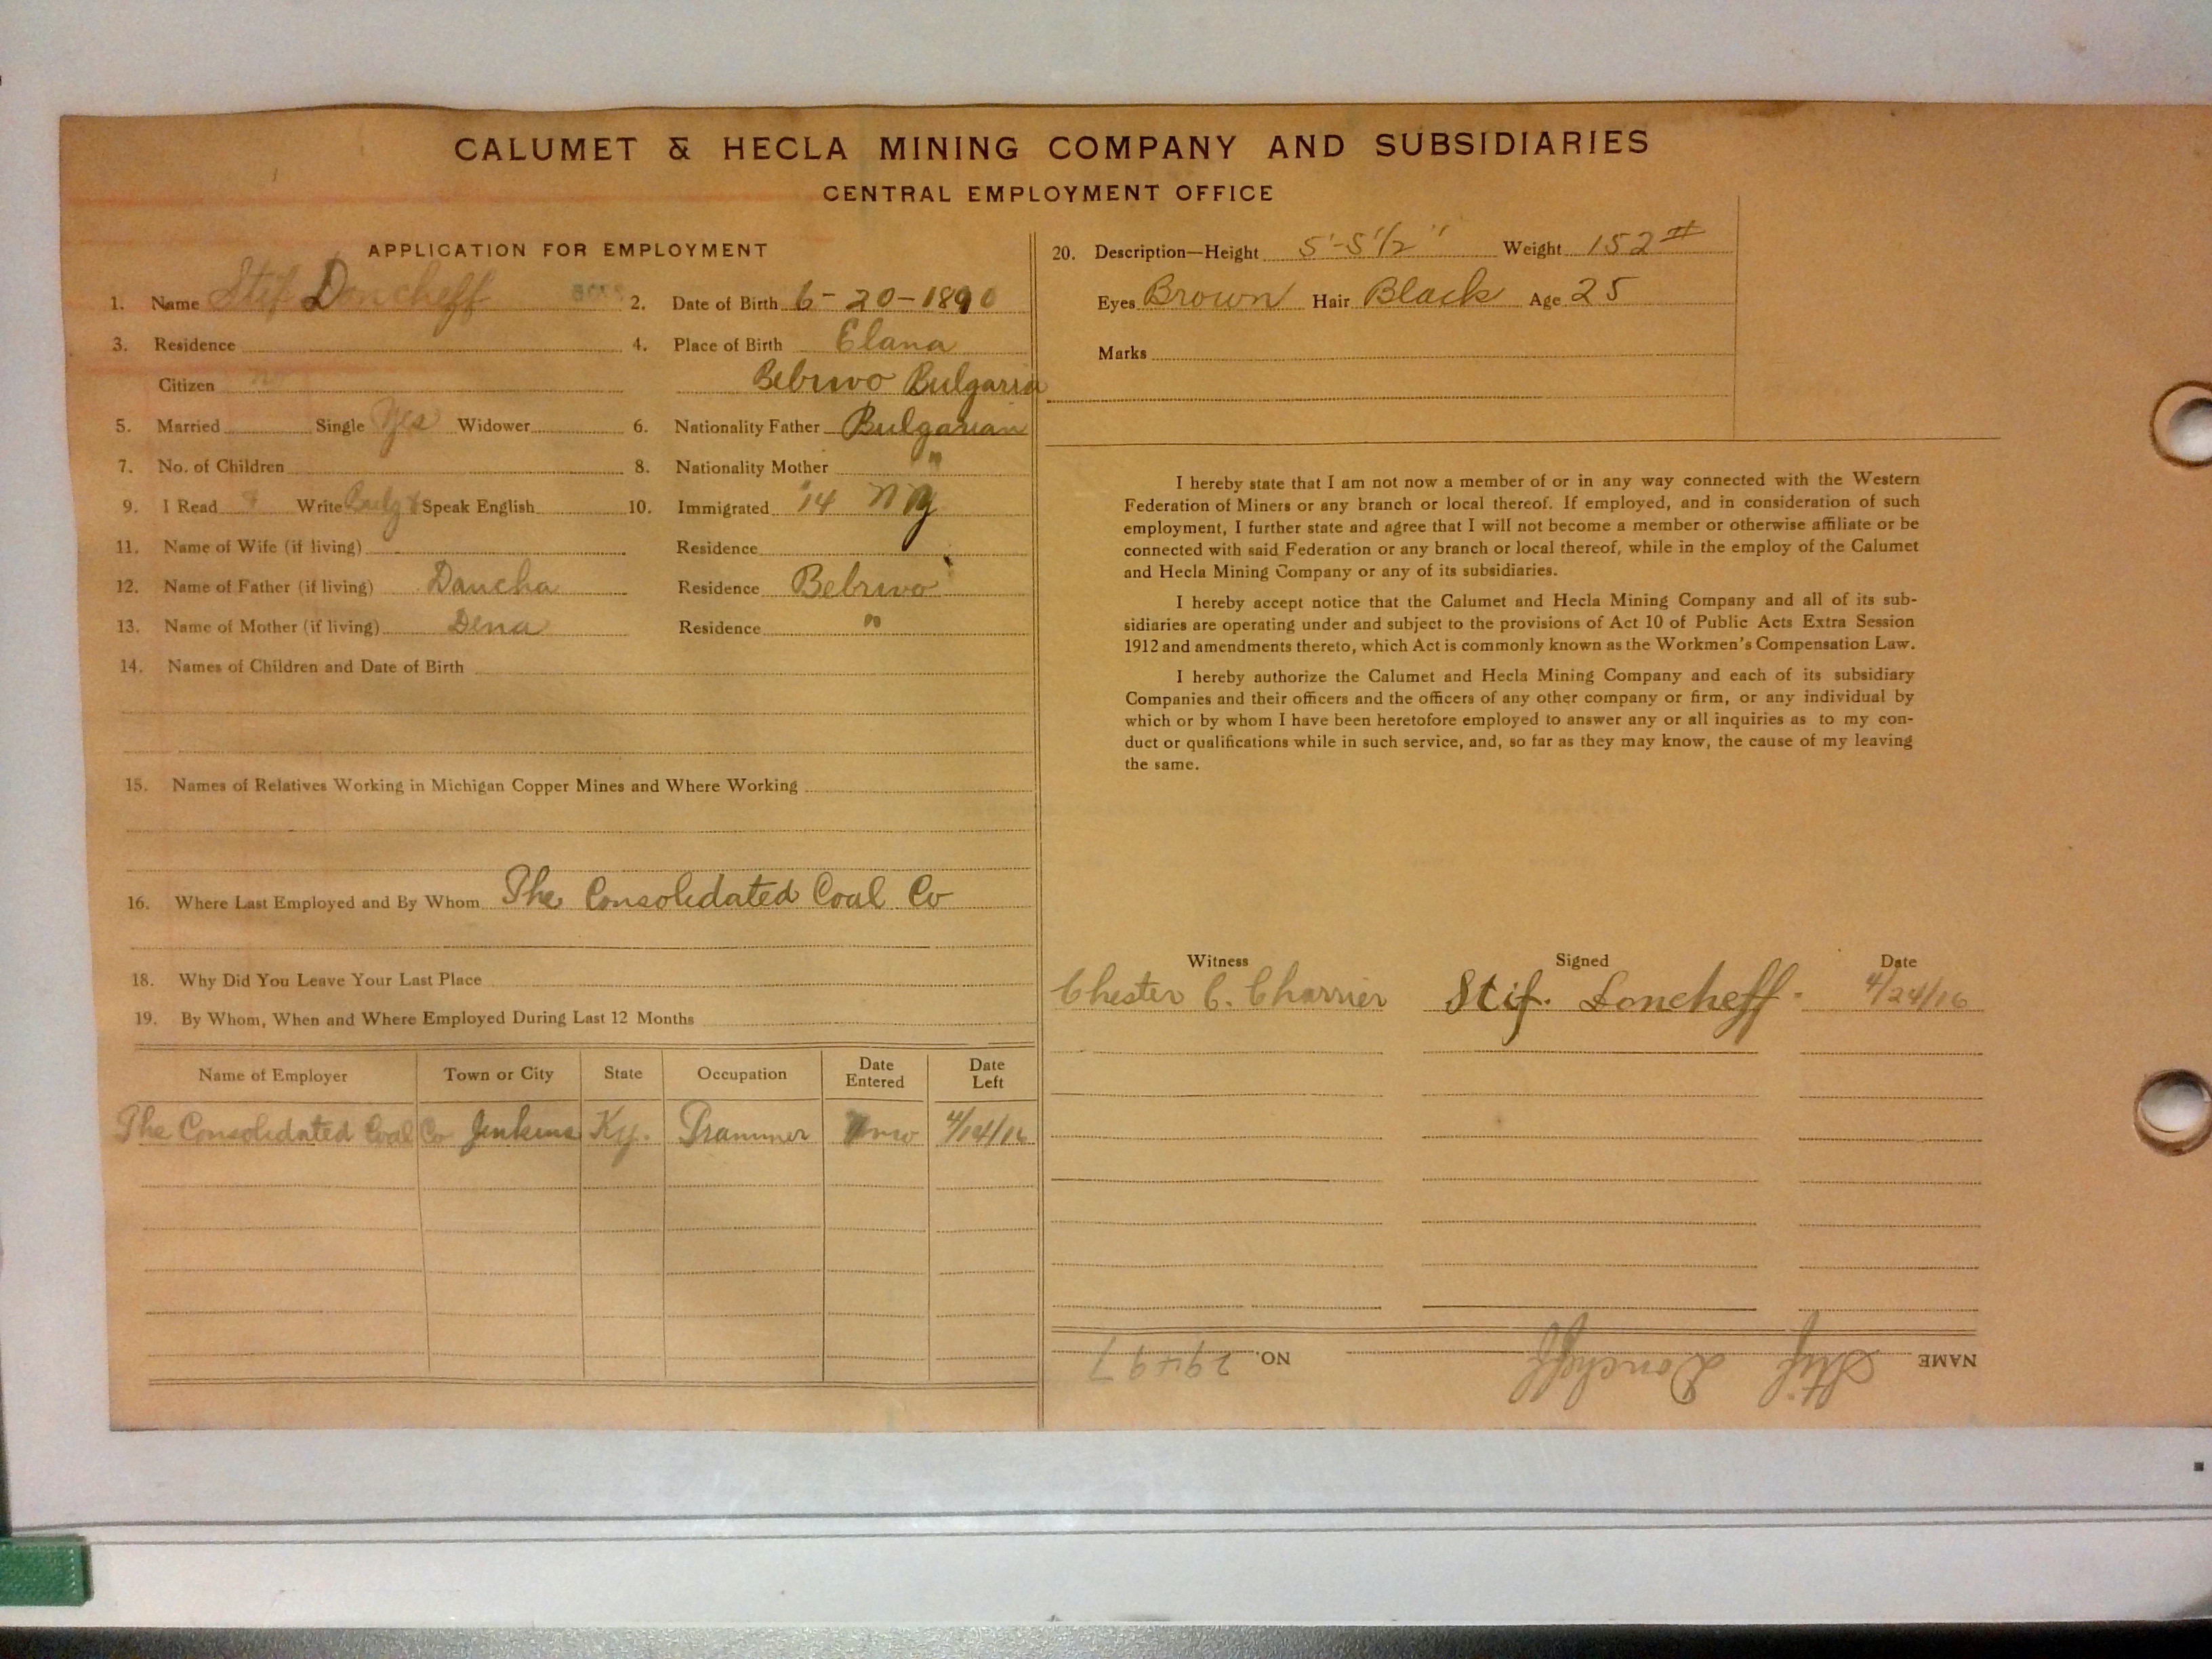 CALUMET & HECLA MINING COMPANY AND SUBSIDIARIES
CENTRAL EMPLOYMENT OFFICE
APPLICATION FOR EMPLOYMENT
1. Name Stif Doncheff 2. Date of Birth 6-20-1890
3. Residence 4. Place of Birth Elana
Citizen no Bebrwo Bulgaria
5. Married Single Yes Widower 6. Nationality Father Bulgarian
7. No. of Children 8. Nationality Mother "
9. I Read & Write Bulg & Speak English 10. Immigrated '14 N Y
11. Name of Wife (if living) Residence
12. Name of Father (if living) Dancha Residence Bebrwo
13. Name of Mother (if living) Dena Residence "
14. Names of Children and Date of Birth
15. Names of Relatives Working in Michigan Copper Mines and Where Working
16. Where Last Employed and By Whom The Consolidated Coal Co
18. Why Did You Leave Your Last Place
19. By Whom, When and Where Employed During Last 12 Months
Name of Employer Town or City State Occupation Date Entered Date Left
The Consolidated Coal Co Jenkins Ky. Trammer 4/14/16
20. Description—Height 5'-5 1/2" Weight 152 #
Eyes Brown Hair Black Age 25
Marks
I hereby state that I am not now a member of or in any way connected with the Western
Federation of Miners or any branch or local thereof. If employed, and in consideration of such
employment, I further state and agree that I will not become a member or otherwise affiliate or be
connected with said Federation or any branch or local thereof, while in the employ of the Calumet
and Hecla Mining Company or any of its subsidiaries.
I hereby accept notice that the Calumet and Hecla Mining Company and all of its sub-
sidiaries are operating under and subject to the provisions of Act 10 of Public Acts Extra Session
1912 and amendments thereto, which Act is commonly known as the Workmen's Compensation Law.
I hereby authorize the Calumet and Hecla Mining Company and each of its subsidiary
Companies and their officers and the officers of any other company or firm, or any individual by
which or by whom I have been heretofore employed to answer any or all inquiries as to my con-
duct or qualifications while in such service, and, so far as they may know, the cause of my leaving
the same.
Witness Signed Date
Chester C. Charrier Stif. Doncheff. 4/24/16
NAME Stif Doncheff NO. 29497